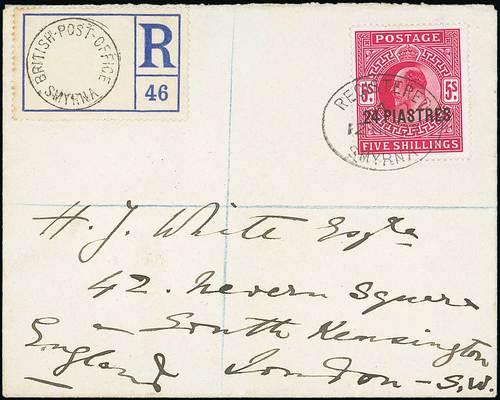 BRITISH·POST·OFFICE
SMYRNA
R
46
POSTAGE
5S 5S
24 PIASTRES
FIVE SHILLINGS
REGISTERED
SMYRNA
H. J. White Esqre
42. Nevern Square
South Kensington
England London - S.W.